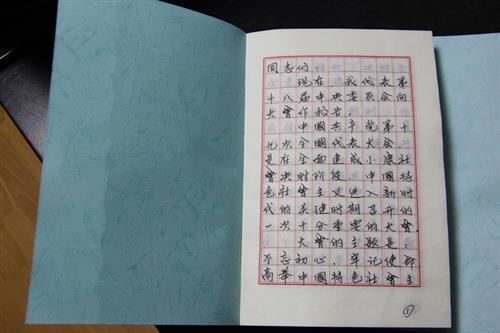 同志们:
现在,我代表第
十八届中央委员会向
大會作报告。
中國共产党第十
九次全國代表大会,
是在全面建成小康社
會决胜阶段、中國特
色社會主义进入新时
代的关键时期召开的
一次十分重要的大會。
大會的主题是:
不忘初心,牢记使命,
高举中國特色社會主
①